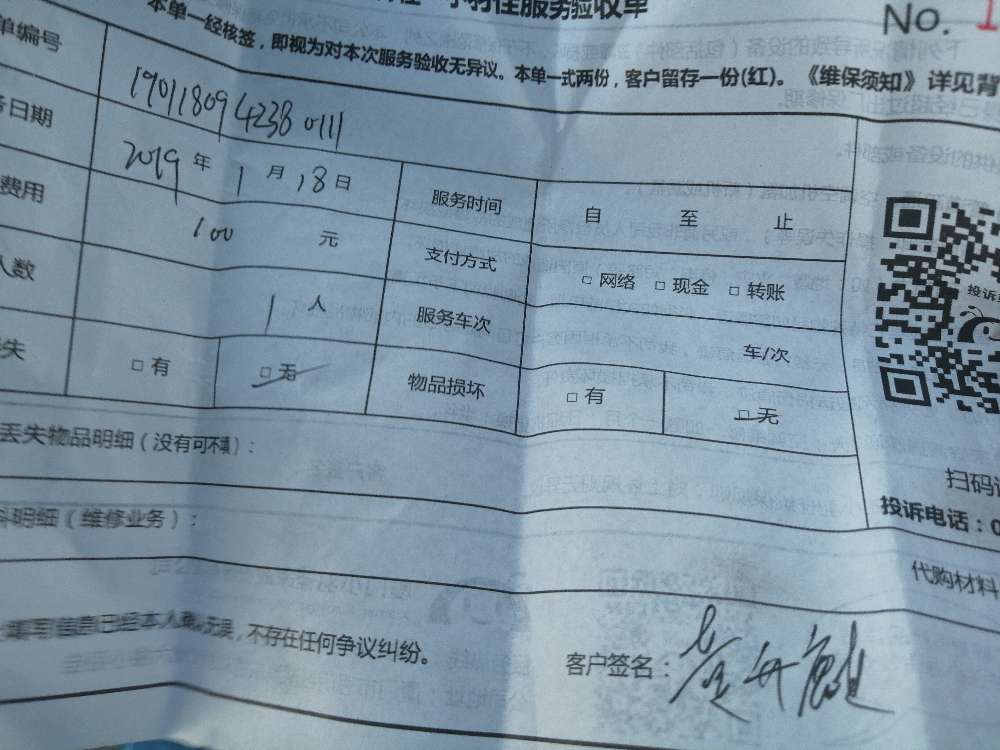 服务验收单
No. 1
本单一经核签，即视为对本次服务验收无异议。本单一式两份，客户留存一份(红)。《维保须知》详见背
单编号 1901180942380111
务日期 2019 年 1 月 18 日 服务时间 自 至 止
费用 100 元 支付方式 □ 网络 □ 现金 □ 转账
人数 1 人 服务车次 车/次
失 □ 有 □ 无 物品损坏 □ 有 □ 无
丢失物品明细（没有可不填）：
料明细（维修业务）：
投诉
扫码
投诉电话：0
代购材料
填写信息已经本人确认无误，不存在任何争议纠纷。
客户签名：